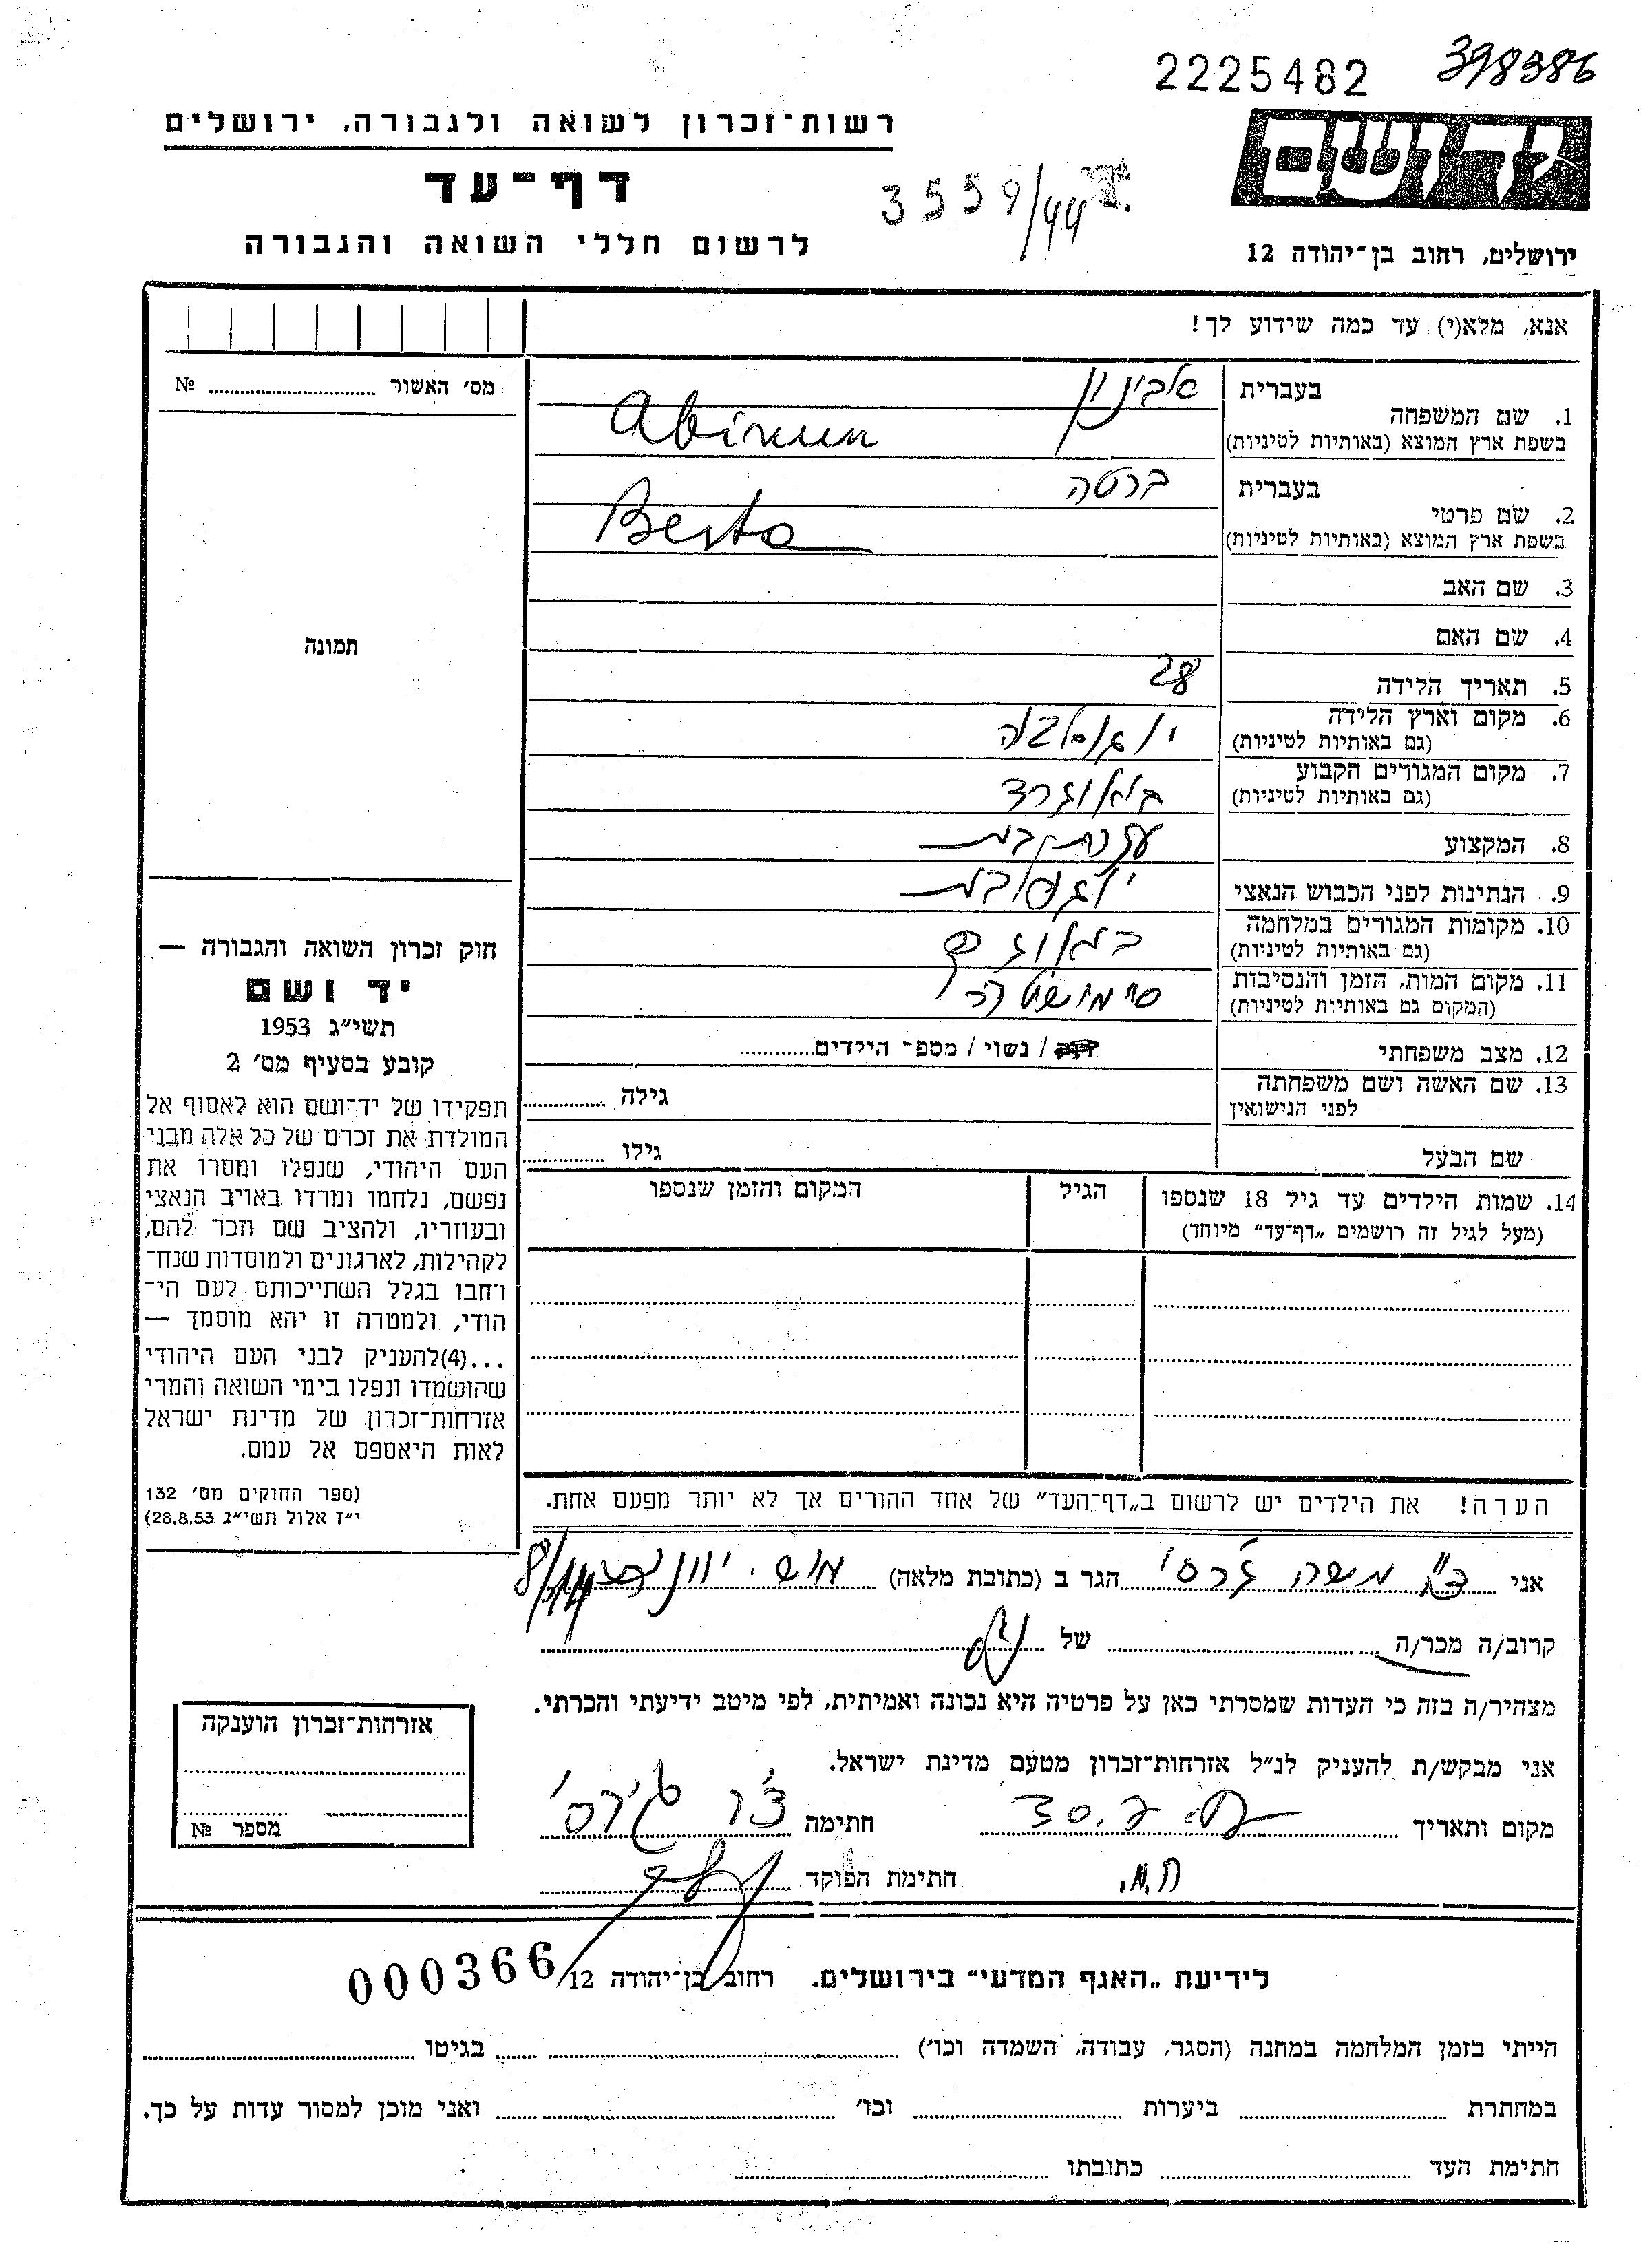 2225482 398386
רשות־זכרון לשואה ולגבורה, ירושלים
דף־עד
3559/44
לרשום חללי השואה והגבורה
ירושלים, רחוב בן־יהודה 12
אנא, מלא(י) עד כמה שידוע לך!
מס׳ האשור № 
1. שם המשפחה בעברית אבינון
בשפת ארץ המוצא (באותיות לטיניות) Abinun
2. שם פרטי בעברית ברטה
בשפת ארץ המוצא (באותיות לטיניות) Berta
3. שם האב
4. שם האם
תמונה
5. תאריך הלידה 28
6. מקום וארץ הלידה יוגוסלביה
(גם באותיות לטיניות)
7. מקום המגורים הקבוע בלוגרד
(גם באותיות לטיניות)
8. המקצוע
9. הנתינות לפני הכבוש הנאצי יוגוסלבית
10. מקומות המגורים במלחמה
(גם באותיות לטיניות)
11. מקום המות, הזמן והנסיבות
(המקום גם באותיות לטיניות)
12. מצב משפחתי / נשוי / מספר הילדים
13. שם האשה ושם משפחתה גילה
לפני הנישואין
שם הבעל גילו
14. שמות הילדים עד גיל 18 שנספו הגיל המקום והזמן שנספו
(מעל לגיל זה רושמים „דף־עד״ מיוחד)
חוק זכרון השואה והגבורה —
יד ושם
תשי״ג 1953
קובע בסעיף מס׳ 2
תפקידו של יד־ושם הוא לאסוף אל
המולדת את זכרם של כל אלה מבני
העם היהודי, שנפלו ומסרו את
נפשם, נלחמו ומרדו באויב הנאצי
ובעוזריו, ולהציב שם וזכר להם,
לקהילות, לארגונים ולמוסדות שנח־
רחבו בגלל השתייכותם לעם הי־
הודי, ולמטרה זו יהא מוסמך —
...(4)להעניק לבני העם היהודי
שהושמדו ונפלו בימי השואה והמרי
אזרחות־זכרון של מדינת ישראל
לאות היאספם אל עמם.
(ספר החוקים מס׳ 132
י״ז אלול תשי״ג 28.8.53)
הערה! את הילדים יש לרשום ב„דף־העד״ של אחד ההורים אך לא יותר מפעם אחת.
אני משה הגר ב (כתובת מלאה) 8/14
קרוב/ה מכר/ה של
מצהיר/ה בזה כי העדות שמסרתי כאן על פרטיה היא נכונה ואמיתית, לפי מיטב ידיעתי והכרתי.
אני מבקש/ת להעניק לנ״ל אזרחות־זכרון מטעם מדינת ישראל.
מקום ותאריך חתימה
חתימת הפוקד
אזרחות־זכרון הוענקה
מספר №
לידיעת „האגף המדעי״ בירושלים. רחוב בן־יהודה 12 000366
הייתי בזמן המלחמה במחנה (הסגר, עבודה, השמדה וכו׳) בגיטו
במחתרת ביערות וכו׳ ואני מוכן למסור עדות על כך.
חתימת העד כתובתו